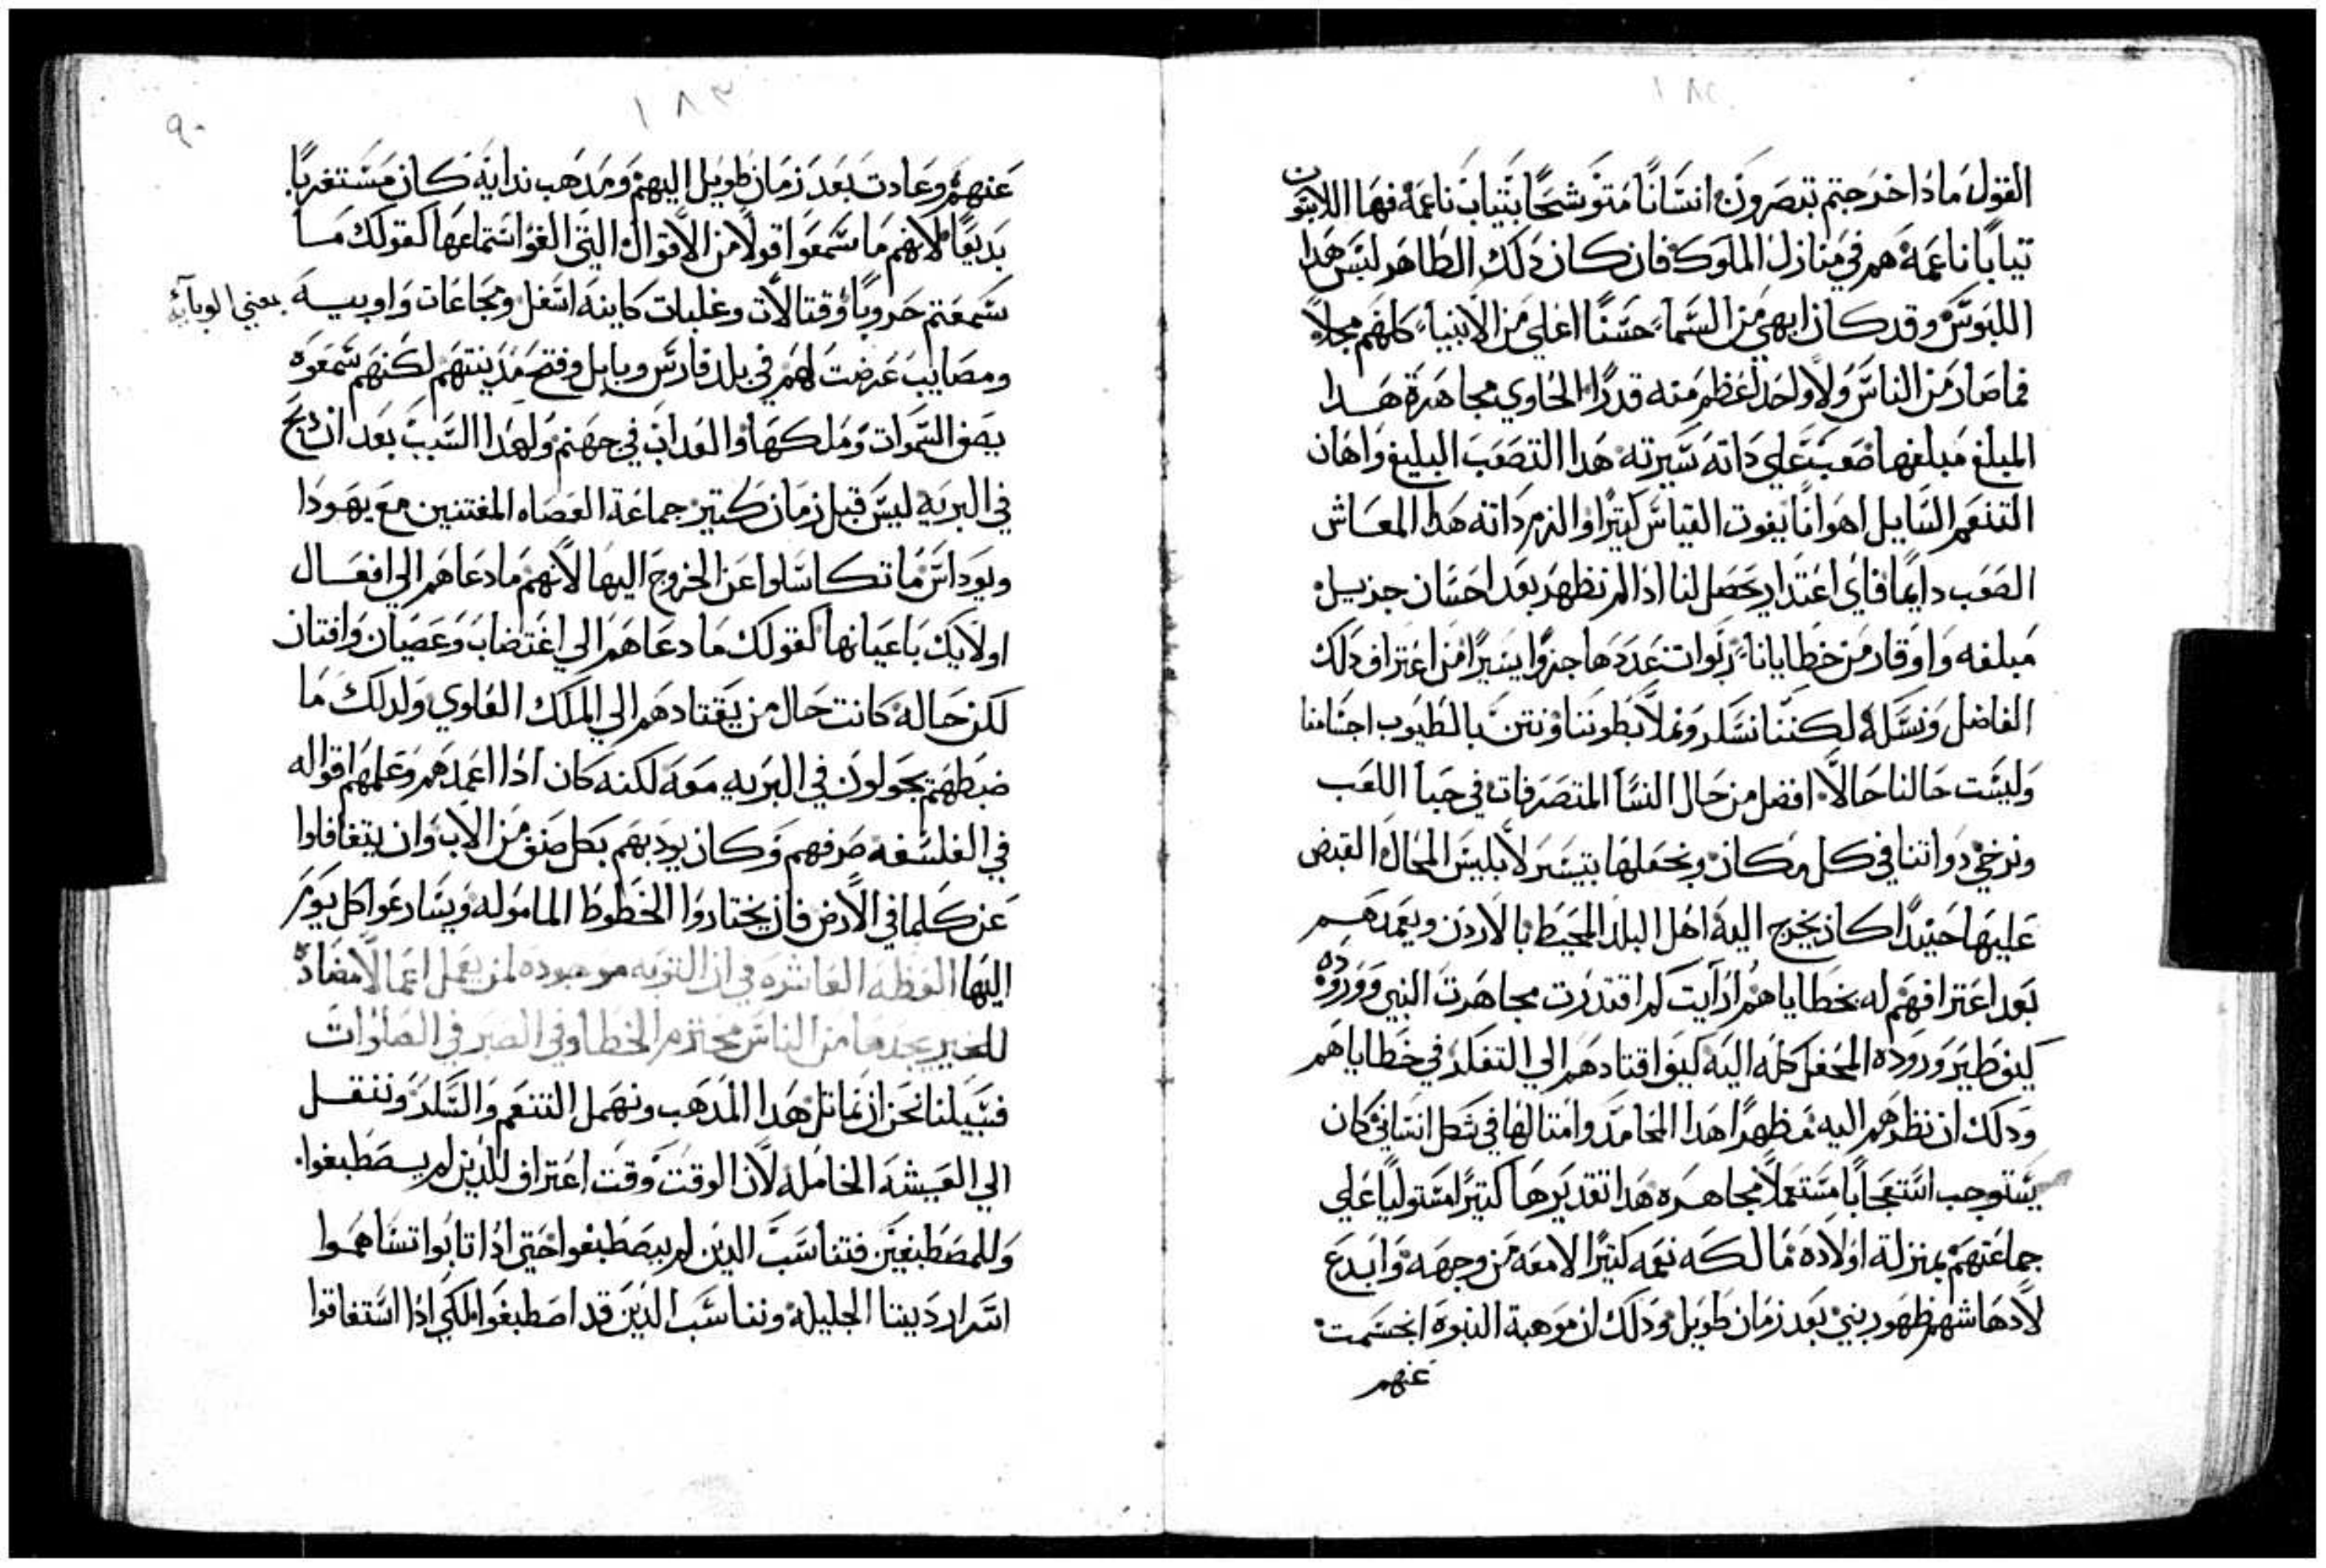 ١٨٢
القول ماذا خرجتم تبصرون انسانًا متوشحًا بثياب ناعمه فها اللابسون
تيابًا ناعمة هم في منازل الملوك فان كان دلك الطاهر لبس هدا
اللبوس وقد كان ابهى من السماء حسنًا اعلي من الانبياء كلهم مجلاً
فما صار من الناس ولا واحد اعظم منه قدرًا الحاوي مجاهرة هدا
المبلغ مبلغها صعب علي داته سيرته هدا التصعب البليغ واهان
التنعم السايل اهوانًا يفوت القياس كتيرًا والزم داته هدا المعاش
الصعب دايمًا فاي اعتدار يحصل لنا ادا لم نظهر بعد احسان جزيل
مبلغه واوقار من خطايانا ربوات عددها جزوًا يسيرًا من اعتراف دلك
الفاضل ونسله لكننا نسكر ونملا بطوننا وننتن بالطيوب اجسامنا
وليست حالنا حالاً افضل من حال النسا المتصرفات في خبا اللعب
ونرخي دواتنا في كل مكان ونجعلها بتيسر لابليس المحال القبض
عليها حينيدًا كان يخرج اليه اهل البلد المحيط بالاردن ويعمدهم
بعد اعترافهم له بخطاياهم ارايت كم اقتدرت مجاهرت النبي ووروده
كيف طير وروده المحفل كله اليه كيف اقتادهم الي التفكر في خطاياهم
ودلك ان نظرهم اليه مظهرًا هدا المحامد وامتالها في شكل انساني كان
يستوجب استعجابًا مستعملاً مجاهره هدا تقديرها كتيرًا مستوليًا علي
جماعتهم بمنزلة اولاده مالكه نعمه كتيرًا لامعه من وجهه وابدع
لادهاشهم ظهور نبي بعد زمان طويل ودلك ان موهبة النبوه انحسمت
عنهم
١٨٣
٩٠
عنهم وعادت بعد زمان طويل اليهم ومدهب ندايه كان مستغربًا
بديعًا لانهم ما سمعوا قولاً من الاقوال التي الفوا استماعها كقولك ما
سمعتم حروبًا وقتالات وغلبات كاينه اسفل ومجاعات واوبيه
يعني الوبايه
ومصايب عرضت لهم في بلد فارس وبابل وفتح مدينتهم لكنهم سمعوه
يصف السموات وملكها والعداب في جهنم ولهدا السبب بعد ان دبح
في البريه ليس قبل زمان كتير جماعة العصاه المفتنين مع يهودا
ويوداس ما تكاسلوا عن الخروج اليها لانهم ما دعاهم الي افعال
اولايك باعيانها كقولك ما دعاهم الي اغتضاب وعصيان وافتان
لكن حاله كانت حال من يقتادهم الي الملك العلوي ولدلك ما
ضبطهم يجولون في البريه معه لكنه كان ادا اعمدهم وعلمهم اقواله
في الفلسفه صرفهم وكان يودبهم بكل صنف من الاب وان يتغافلوا
عن كلما في الارض فان يختاروا الخطوط المامولة ويسارعوا كل يوم
اليها العظه العاشره في ان التوبه موجوده لمن يعمل اعمالا مضاده
للخير بجدها من الناس محترم الخطا وفي الصبر في الصلوات
فسبيلنا نحن ان نماتل هدا المدهب ونهمل التنعم والسكر وننتقل
الي العيشه الخامله لان الوقت وقت اعتراف للدين لم يصطبغوا
وللمصطبغين فتناسب الدين لم يصطبغوا حتي ادا تابوا تساهموا
اسرار ديننا الجليله ونناسب الدين قد اصطبغوا لكي ادا استفاقوا